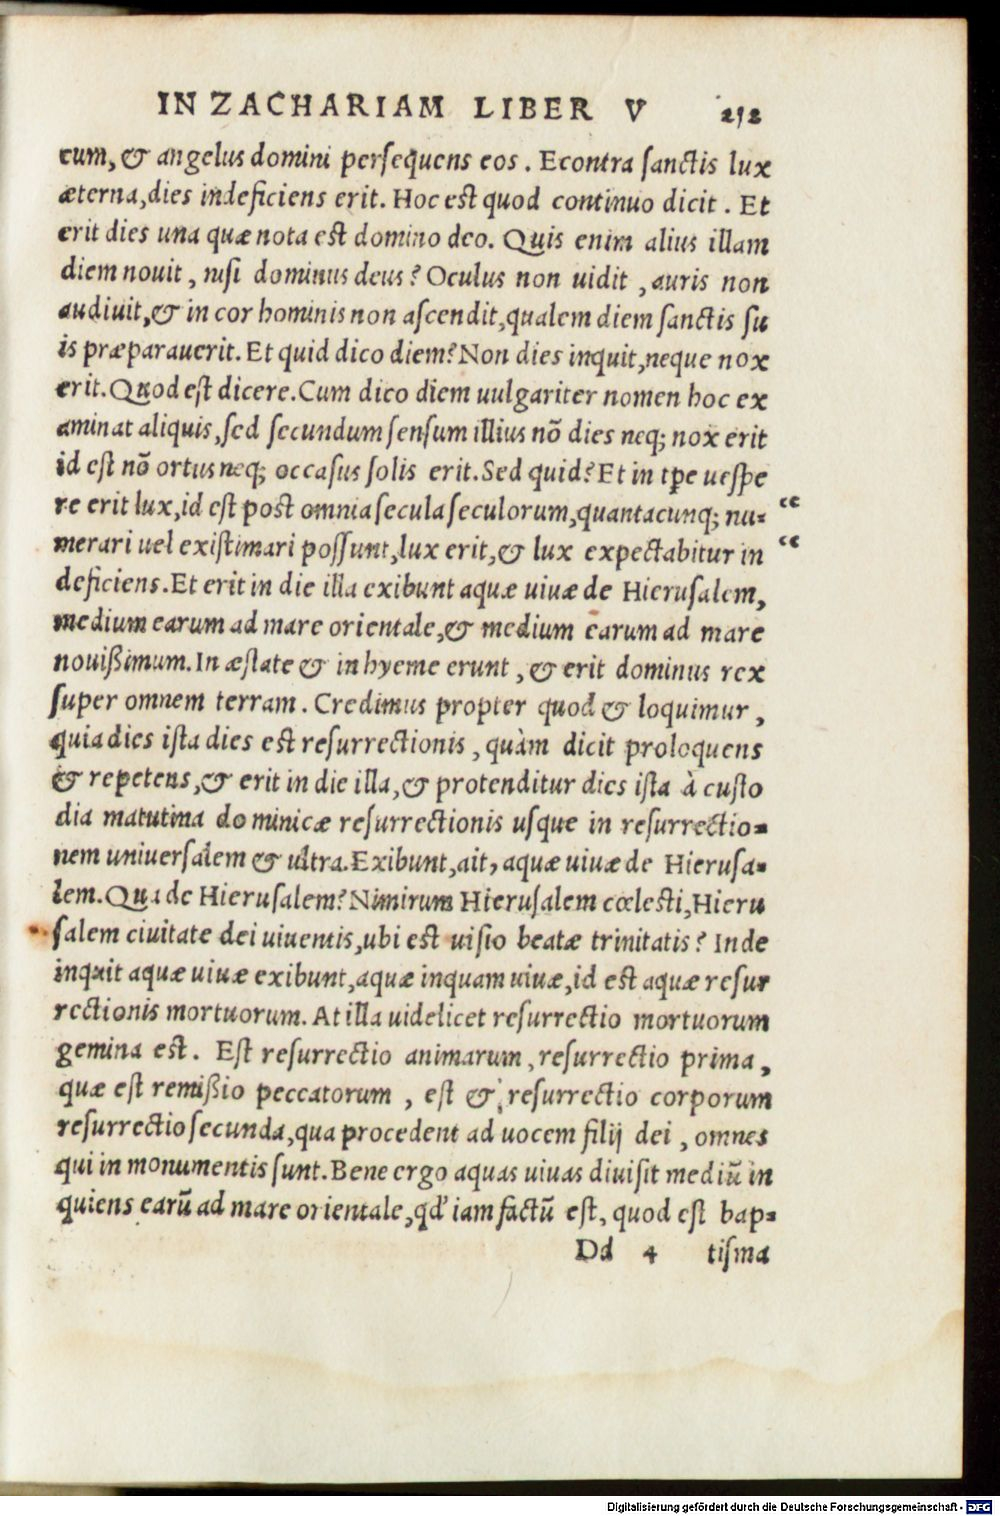 IN ZACHARIAM LIBER V 252
rum, & angelus domini persequens eos. Econtra sanctis lux
æterna, dies indeficiens erit. Hoc est quod continuo dicit. Et
erit dies una quæ nota est domino deo. Quis enim alius illam
diem nouit, nisi dominus deus? Oculus non uidit, auris non
audiuit, & in cor hominis non ascendit, qualem diem sanctis su
is præparauerit. Et quid dico diem? Non dies inquit, neque nox
erit. Quod est dicere. Cum dico diem uulgariter nomen hoc ex
aminat aliquis, sed secundum sensum illius nõ dies neq; nox erit
id est nõ ortus neq; occasus solis erit. Sed quid? Et in tꝑe uespe
re erit lux, id est post omnia secula seculorum, quantacunq; nu= “
merari uel existimari possunt, lux erit, & lux expectabitur in “
deficiens. Et erit in die illa exibunt aquæ uiuæ de Hierusalem,
medium earum ad mare orientale, & medium earum ad mare
nouißimum. In æstate & in hyeme erunt, & erit dominus rex
super omnem terram. Credimus propter quod & loquimur,
quia dies ista dies est resurrectionis, quàm dicit proloquens
& repetens, & erit in die illa, & protenditur dies ista à custo
dia matutina dominicæ resurrectionis usque in resurrectio=
nem uniuersalem & ultra. Exibunt, ait, aquæ uiuæ de Hierusa=
lem. Qua de Hierusalem? Nimirum Hierusalem cœlesti, Hieru
salem ciuitate dei uiuentis, ubi est uisio beatæ trinitatis? Inde
inquit aquæ uiuæ exibunt, aquæ inquam uiuæ, id est aquæ resur
rectionis mortuorum. At illa uidelicet resurrectio mortuorum
gemina est. Est resurrectio animarum, resurrectio prima,
quæ est remißio peccatorum, est & resurrectio corporum
resurrectio secunda, qua procedent ad uocem filij dei, omnes
qui in monumentis sunt. Bene ergo aquas uiuas diuisit mediũ in
quiens earũ ad mare orientale, qd' iam factũ est, quod est bap=
Dd 4 tisma
Digitalisierung gefördert durch die Deutsche Forschungsgemeinschaft - DFG